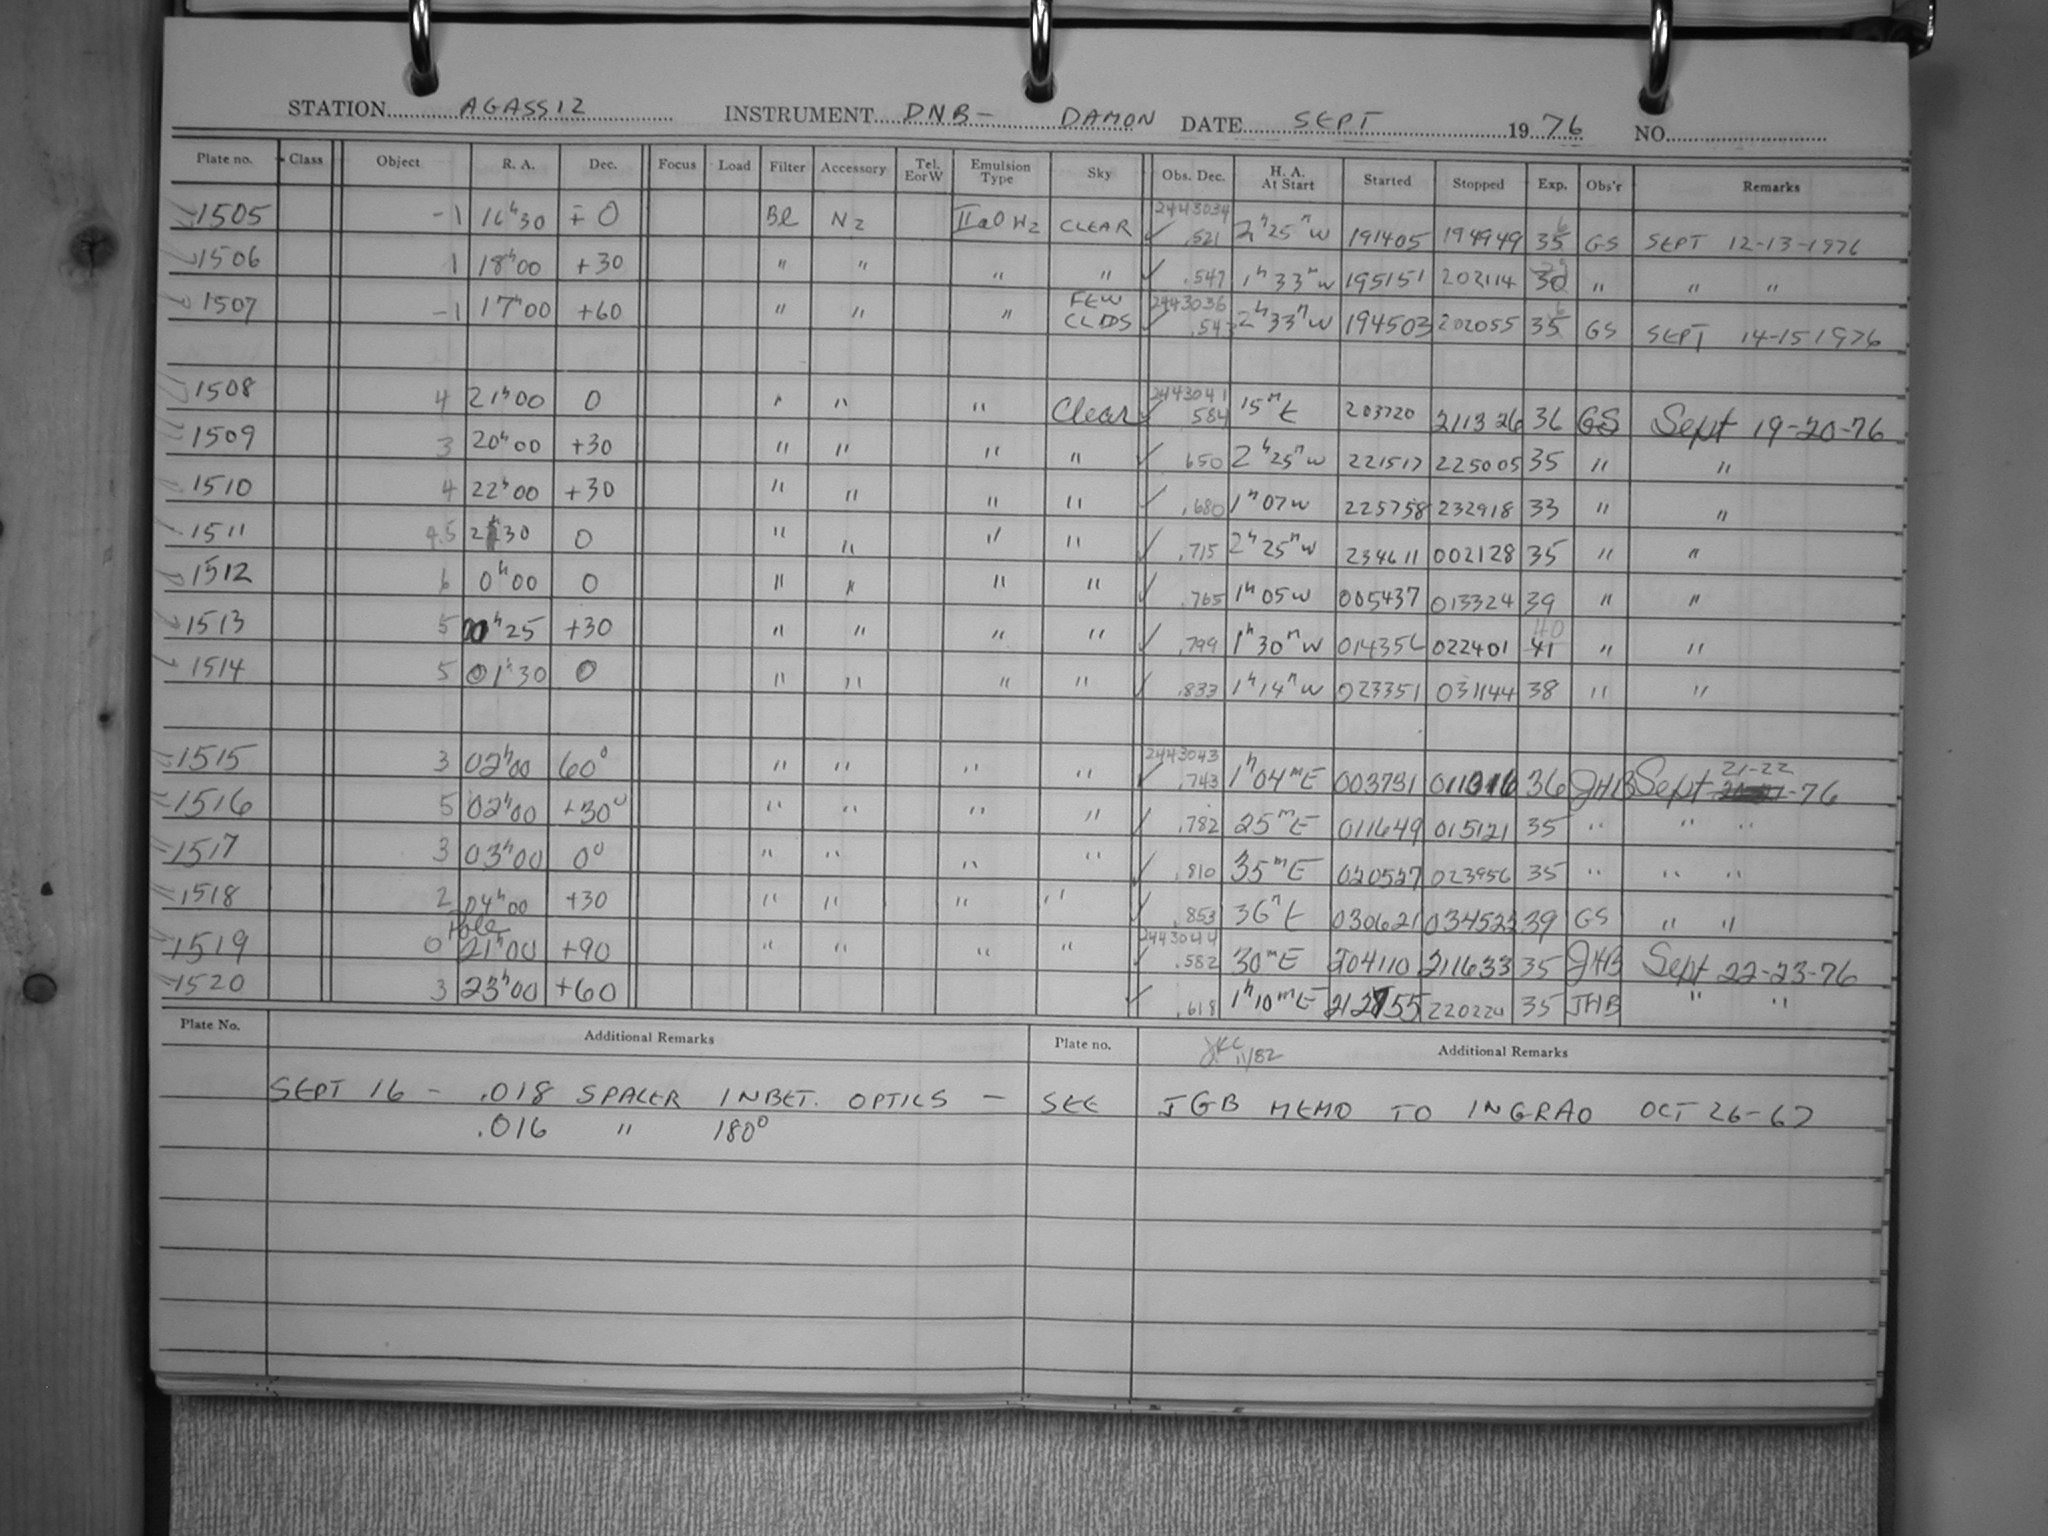 STATION AGASSIZ INSTRUMENT DNB- DAMON DATE SEPT 1976 NO.
Plate no. Class Object R. A. Dec. Focus Load Filter Accessory Tel. E or W Emulsion Type Sky Obs. Dec. H. A. At Start Started Stopped Exp. Obs'r Remarks
1505 -1 16h30 0 Bl N2 IIaO H2 CLEAR ✓ 2443034 .521 2h25m W 191405 194949 35 6 GS SEPT 12-13-1976
1506 1 18h00 +30 " " " " ✓ .547 1h33m W 195151 202114 30 29 " " "
1507 -1 17h00 +60 " " " FEW CLDDS ✓ 2443036 .543 2h33m W 194503 202055 35 6 GS SEPT 14-15 1976
1508 4 21h00 0 " " " Clear ✓ 2443041 .584 15m E 203720 211326 36 GS Sept 19-20-76
1509 3 20h00 +30 " " " " ✓ .650 2h25m W 221517 225005 35 " "
1510 4 22h00 +30 " " " " ✓ .680 1h07W 225758 232918 33 " "
1511 4.5 2130 0 " " " " ✓ .715 2h25m W 234611 002128 35 " "
1512 6 0h00 0 " " " " ✓ .765 1h05W 005437 013324 39 " "
1513 5 00h25 +30 " " " " ✓ .799 1h30m W 014356 022401 41 40 " "
1514 5 01h30 0 " " " " ✓ .833 1h14m W 023351 031144 38 " "
1515 3 02h00 60° " " " " ✓ 2443043 .743 1h04m E 003731 011316 36 JHB Sept 21-22-76
1516 5 02h00 +30° " " " " ✓ .782 25m E 011649 015121 35 " " "
1517 3 03h00 0° " " " " ✓ .810 35m E 020527 023956 35 " " "
1518 2 04h00 +30 " " " " ✓ .853 36m E 030621 034523 39 GS " "
1519 0 Pole 21h00 +90 " " " " ✓ 2443044 .582 30m E 204110 211633 35 JHB Sept 22-23-76
1520 3 23h00 +60 ✓ .618 1h10m E 212755 220220 35 JHB " "
Plate No. Additional Remarks Plate no. JKC 11/82 Additional Remarks
SEPT 16 - .018 SPACER INBET. OPTICS - SEE JGB MEMO TO INGRAO OCT 26-67
.016 " 180°